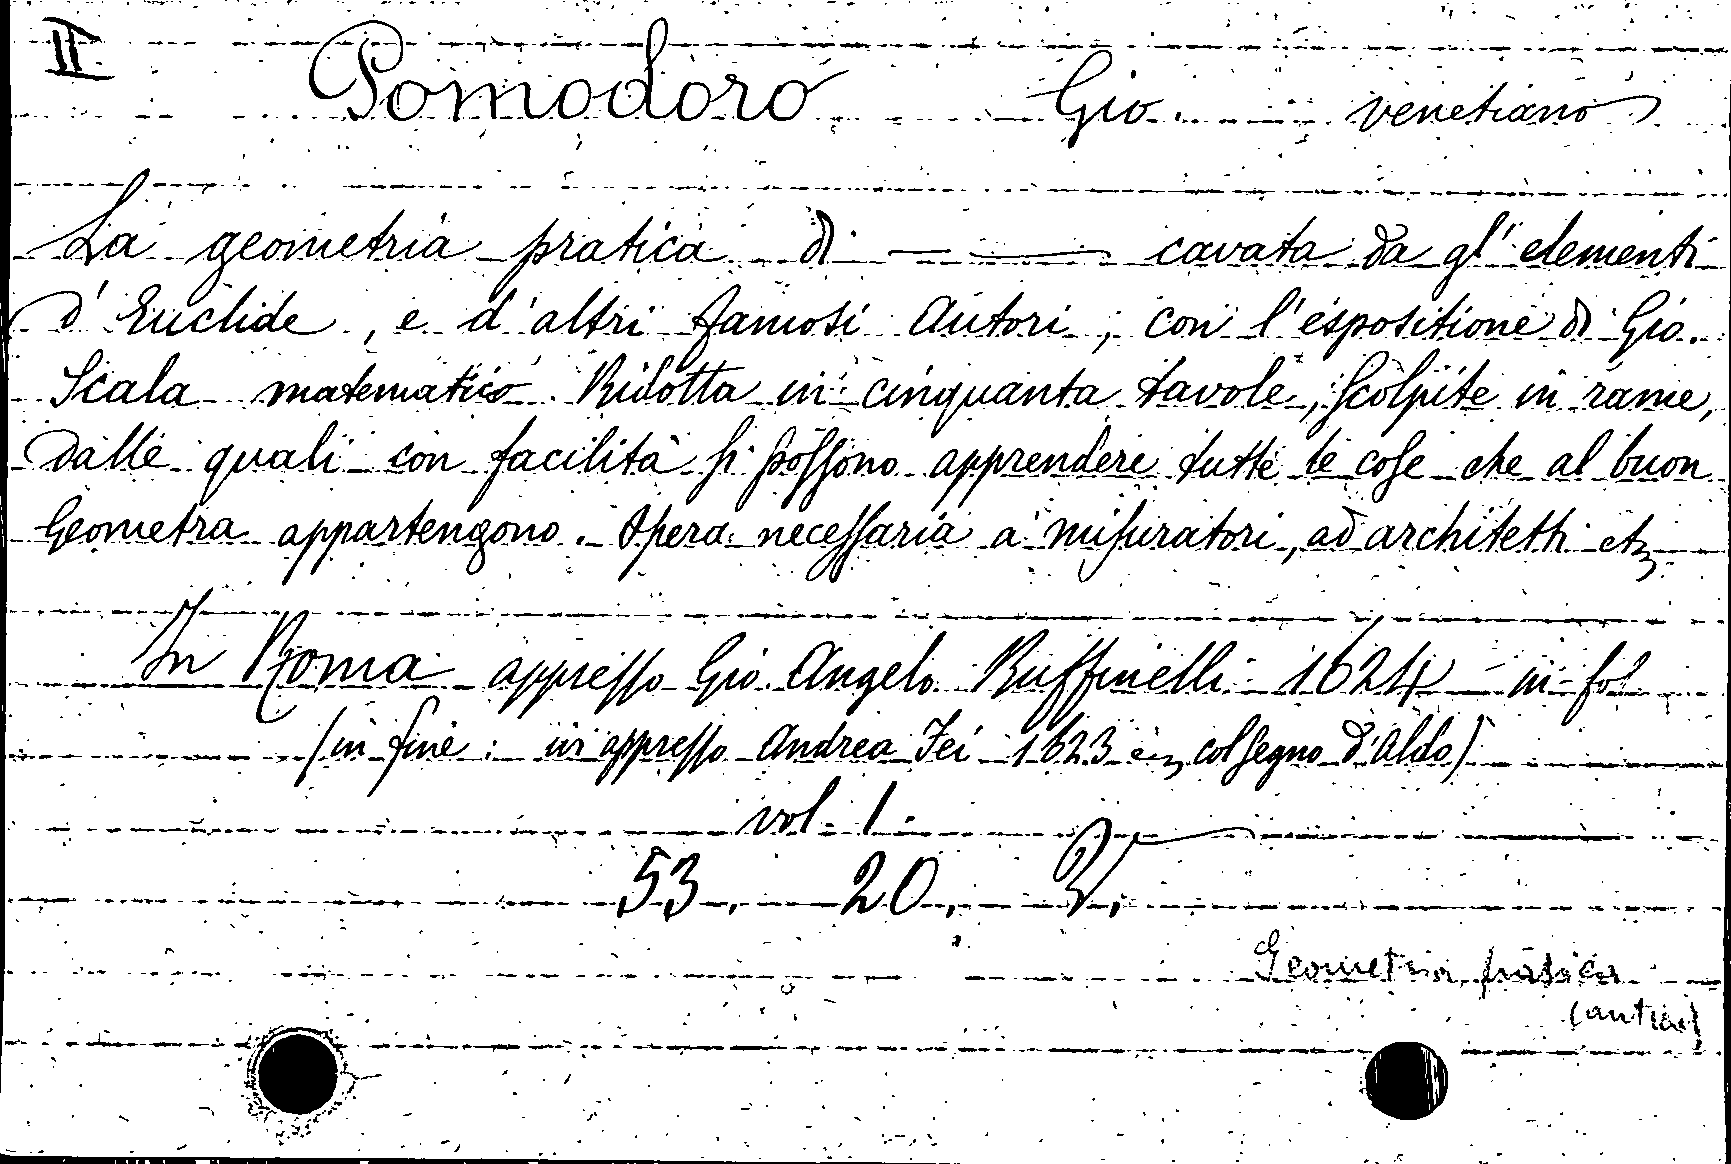 II
Pomodoro Gio. venetiano
La geometria pratica di — — cavata da gl' elementi
d' Euclide, e d'altri famosi Autori, con l'espositione di Gio.
Scala matematico. Ridotta in cinquanta tavole, scolpite in rame,
dalle quali con facilità si possono apprendere tutte le cose che al buon
Geometra appartengono. Opera necessaria a' misuratori, ad architetti etc
In Roma appresso Gio. Angelo Ruffinelli 1624 - in fol
(in fine: ivi appresso Andrea Fei 1623 col segno d'Aldo)
vol. 1.
53. 20.
Geometria pratica